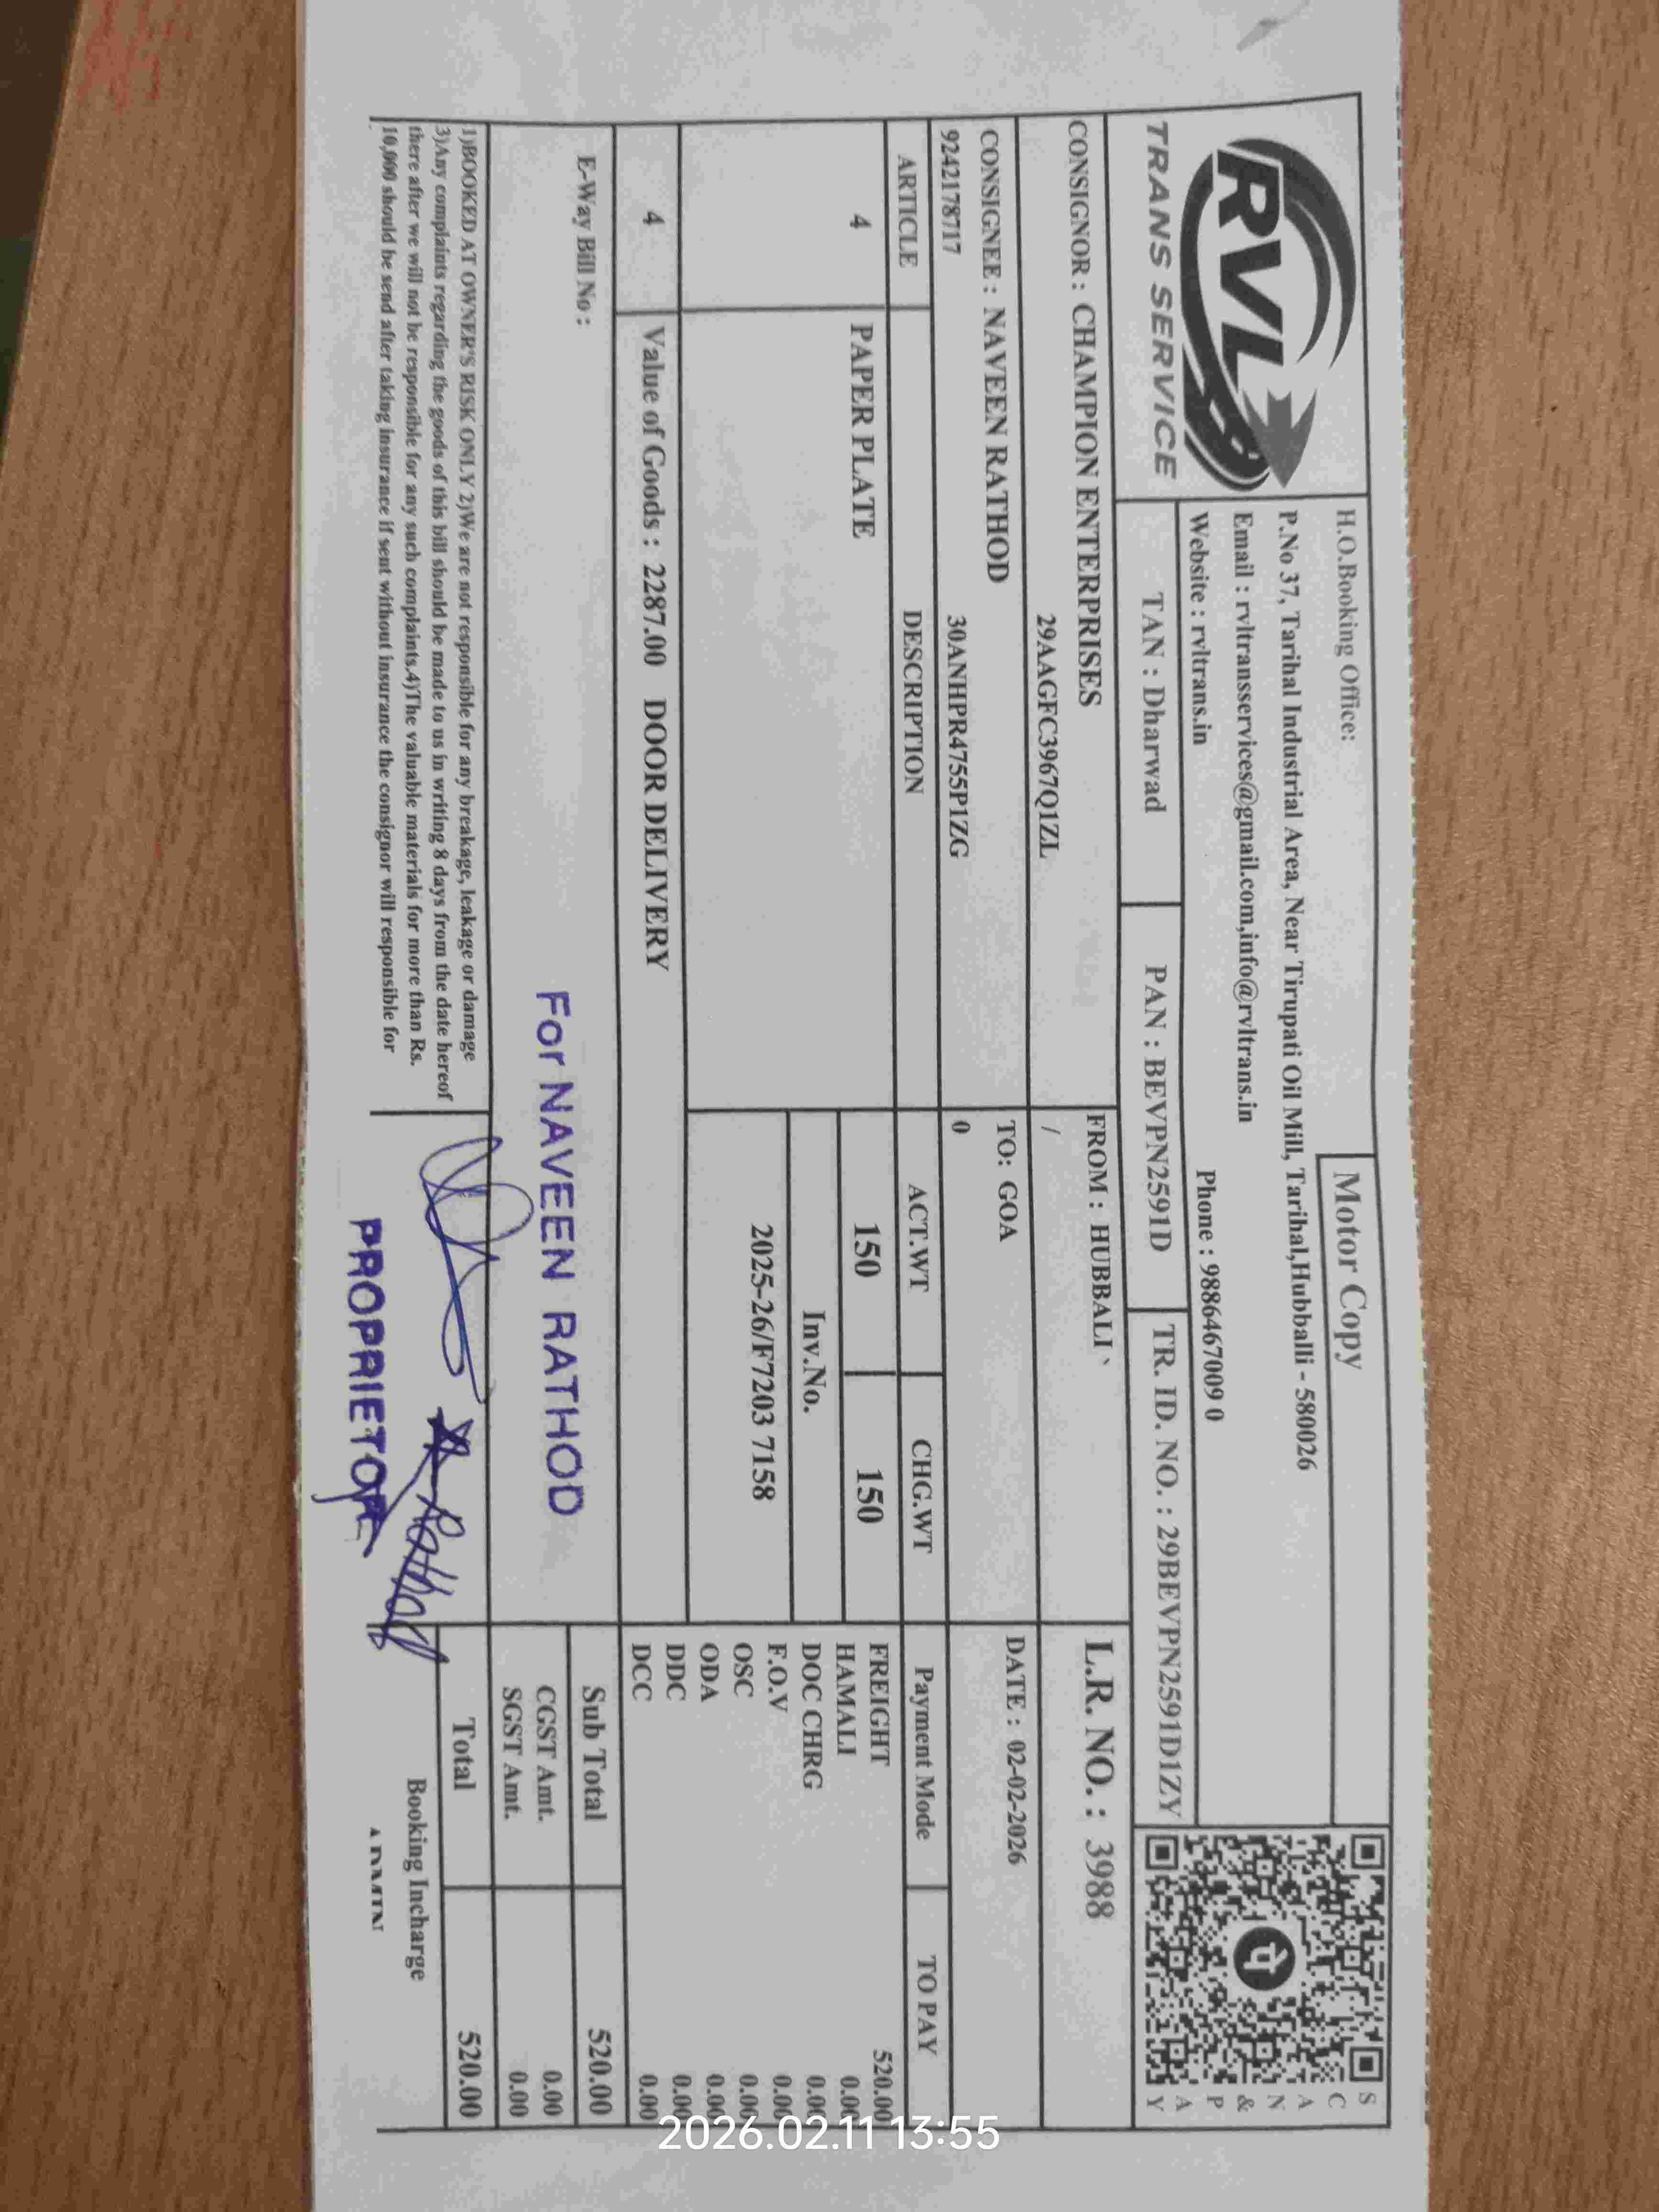 RVL
TRANS SERVICE
H.O.Booking Office:
Motor Copy
P.No 37, Tarihal Industrial Area, Near Tirupati Oil Mill, Tarihal,Hubballi - 580026
Email : rvltransservices@gmail.com,info@rvltrans.in
Website : rvltrans.in
Phone : 9886467009 0
SCAN & PAY
TAN : Dharwad
PAN : BEVPN2591D
TR. ID. NO. : 29BEVPN2591D1ZY
CONSIGNOR : CHAMPION ENTERPRISES
29AAGFC3967Q1ZL
FROM : HUBBALI `
/
L.R. NO. : 3988
CONSIGNEE : NAVEEN RATHOD
9242178717
30ANHPR4755P1ZG
TO: GOA
0
DATE : 02-02-2026
ARTICLE DESCRIPTION ACT.WT CHG.WT Payment Mode TO PAY
4 PAPER PLATE 150 150
Inv.No.
2025-26/F7203 7158
FREIGHT 520.00
HAMALI 0.00
DOC CHRG 0.00
F.O.V 0.00
OSC 0.00
ODA 0.00
DDC 0.00
DCC 0.00
4 Value of Goods : 2287.00 DOOR DELIVERY
E-Way Bill No :
Sub Total 520.00
CGST Amt. 0.00
SGST Amt. 0.00
Total 520.00
For NAVEEN RATHOD
PROPRIETOR
1)BOOKED AT OWNER'S RISK ONLY 2)We are not responsible for any breakage, leakage or damage
3)Any complaints regarding the goods of this bill should be made to us in writing 8 days from the date hereof
there after we will not be responsible for any such complaints.4)The valuable materials for more than Rs.
10,000 should be send after taking insurance if sent without insurance the consignor will responsible for
Booking Incharge
ADMIN
2026.02.11 13:55